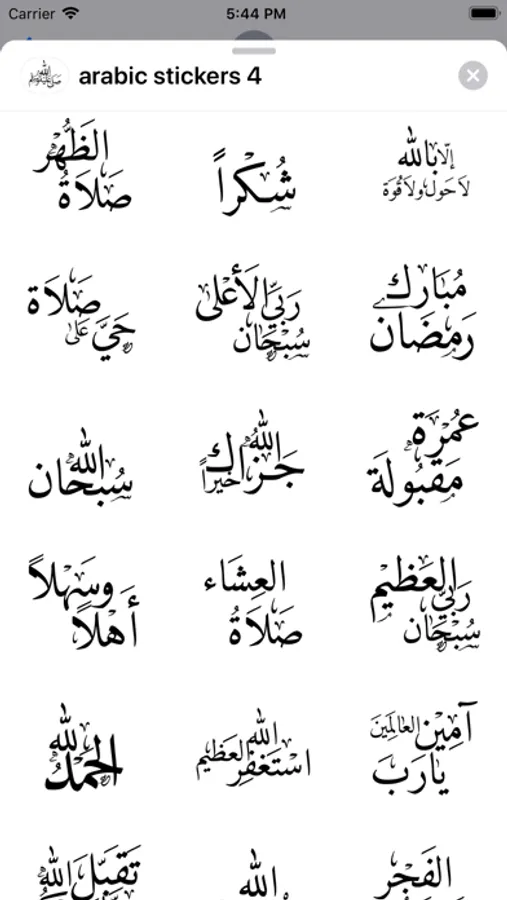 Carrier
5:44 PM
arabic stickers 4
صَلَاةُ
الظُّهْر
شُكْراً
لَا حَول وَلَا قُوَة
إلّا بالله
حَيَّ عَلَى
صَلَاة
سُبْحَان
رَبِّيَ الَأعْلَى
رَمَضَان
مُبَارَك
سُبحَان
الله
جَزَاك الله
خيراً
عُمْرَة
مَقبُولَة
أَهْلاً
وسَهْلاً
صَلَاةُ
العِشَاء
سُبْحَان
رَبِّيَ
العَظِيم
الحَمْدُ
لله
استَغفِر الله
العَظِيم
آمِين
يَا رَبَ
العَالَمِينَ
تَقَبَّلَ الله
الله
الفَجْر